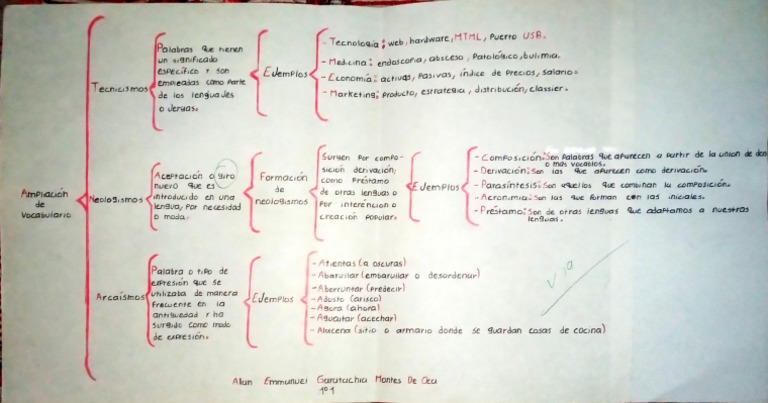 Ampliación
de
Vocabulario
Tecnicismos
Palabras que tienen
un significado
específico y son
empleadas como parte
de los lenguajes
o jergas.
Ejemplos
- Tecnología: web, hardware, MTML, Puerto USB.
- Medicina: endoscopia, absceso, Patológico, bulimia.
- Economía: activos, Pasivas, índice de Precios, salario.
- Marketing: Producto, estrategia, distribución, classier.
Neologismos
Aceptación o giro
nuevo que es
introducido en una
lengua, Por necesidad
o moda.
Formación
de
neologismos
Surgen Por compo-
sición derivación,
como Préstamo
de otras lenguas o
Por interención o
creación popular.
Ejemplos
- Composición: Son Palabras que aparecen a partir de la union de dos
o mas vocablos.
- Derivación: Son las que aparecen como derivación.
- Parasíntesis: Son aquellos que combinan la composición.
- Acronimia: Son las que forman con las iniciales.
- Préstamo: Son de otras lenguas que adaptamos a nuestras
lenguas.
Arcaísmos
Palabra o tipo de
expresión que se
utilizaba de manera
frecuente en la
antiguedad y ha
surgido como modo
de expresión.
Ejemplos
- Atientas (a oscuras)
- Abarullar (embarullar o desordenar)
- Aberruntar (Predecir)
- Adusto (arisco)
- Agora (ahora)
- Aguaitar (acechar)
- Alacena (sitio o armario donde se guardan cosas de cocina)
Alan Emmanuel Garatachia Montes De Oca
1º1